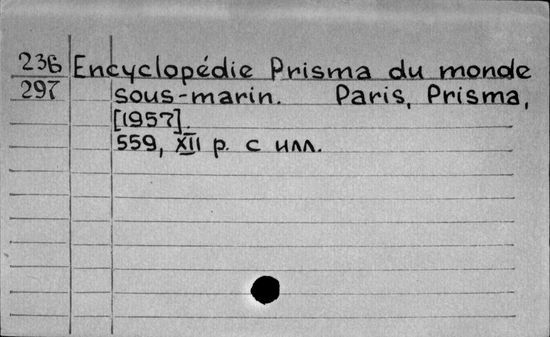 236 Encyclopédie Prisma du monde
297 sous-marin. Paris, Prisma,
[1957].
559, XII p. с илл.